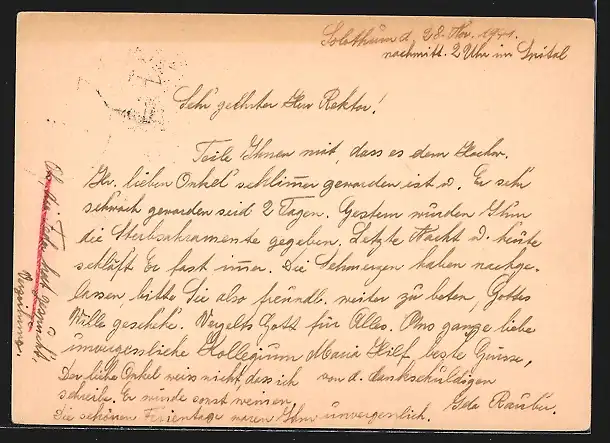 Solothurn d. 28. Nov. 1941.
nachmitt. 2 Uhr im Spital
Sehr geehrter Herr Rektor!
Teile Ihnen mit, dass es dem Hochw.
Hr. lieben Onkel schlimmer geworden ist u. Er sehr
schwach geworden seid 2 Tagen. Gestern wurden Ihm
die Sterbsakramente gegeben. Letzte Nacht u. heute
schläft Er fast immer. Die Schmerzen haben nachge-
lassen, bitte Sie also freundl. weiter zu beten, Gottes
Wille geschehe. Vergelts Gott für Alles. Ans ganze liebe
unvergessliche Kollegium Maria Hilf beste Grüsse,
von d. dankschuldigen
Ida Rauber.
Der liebe Onkel weiss nicht dass ich
schreibe. Er würde sonst weinen,
Die schönen Ferientage waren Ihm unvergesslich.
Oh, die Feder hat gespuckt,
Verzeihung.